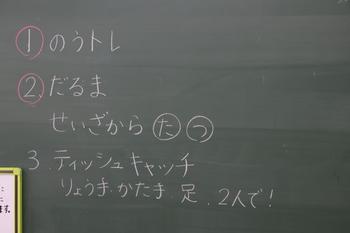 ① のうトレ
② だるま
せいざから た つ
3. ティッシュキャッチ
りょうき.かたま.足.2人で!
に
ます。